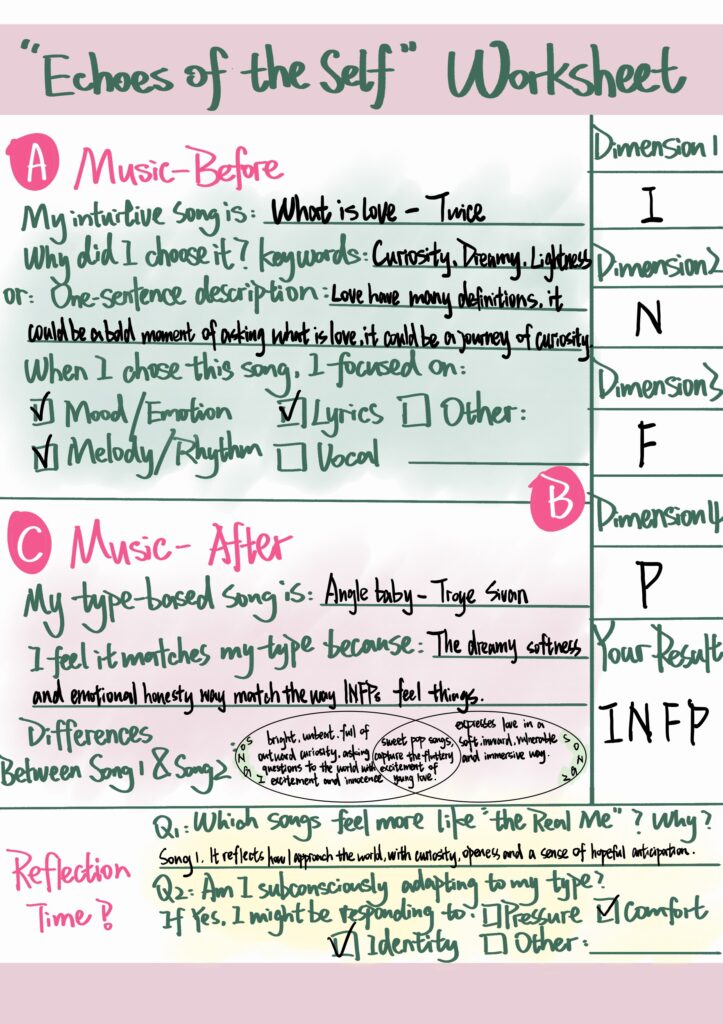 "Echoes of the Self" Worksheet
A Music-Before
My intuitive song is: What is love - Twice
Why did I choose it? keywords: Curiosity. Dreamy. Lightness
or: One-sentence description: Love have many definitions. it
could be a bold moment of asking what is love. it could be a journey of curiosity
When I chose this song, I focused on:
Mood/Emotion Lyrics Other:
Melody/Rhythm Vocal
B
Dimension 1
I
Dimension 2
N
Dimension 3
F
Dimension 4
P
Your Result
INFP
C Music-After
My type-based song is: Angle baby - Troye Sivan
I feel it matches my type because: The dreamy softness
and emotional honesty way match the way INFPs feel things.
Differences
Between Song 1 & Song 2:
SONG 1
bright, unbeat. full of
outward curiosity, asking
questions to the world with
excitement and innocence
sweet pop songs,
capture the fluttery
excitement of
young love.
expresses love in a
soft, inward, vulnerable
and immersive way.
SONG 2
Reflection
Time?
Q1: Which songs feel more like "the Real Me"? Why?
Song 1. It reflects how I approach the world, with curiosity, openess and a sense of hopeful anticipation.
Q2: Am I subconsciously adapting to my type?
If Yes, I might be responding to: Pressure Comfort
Identity Other: